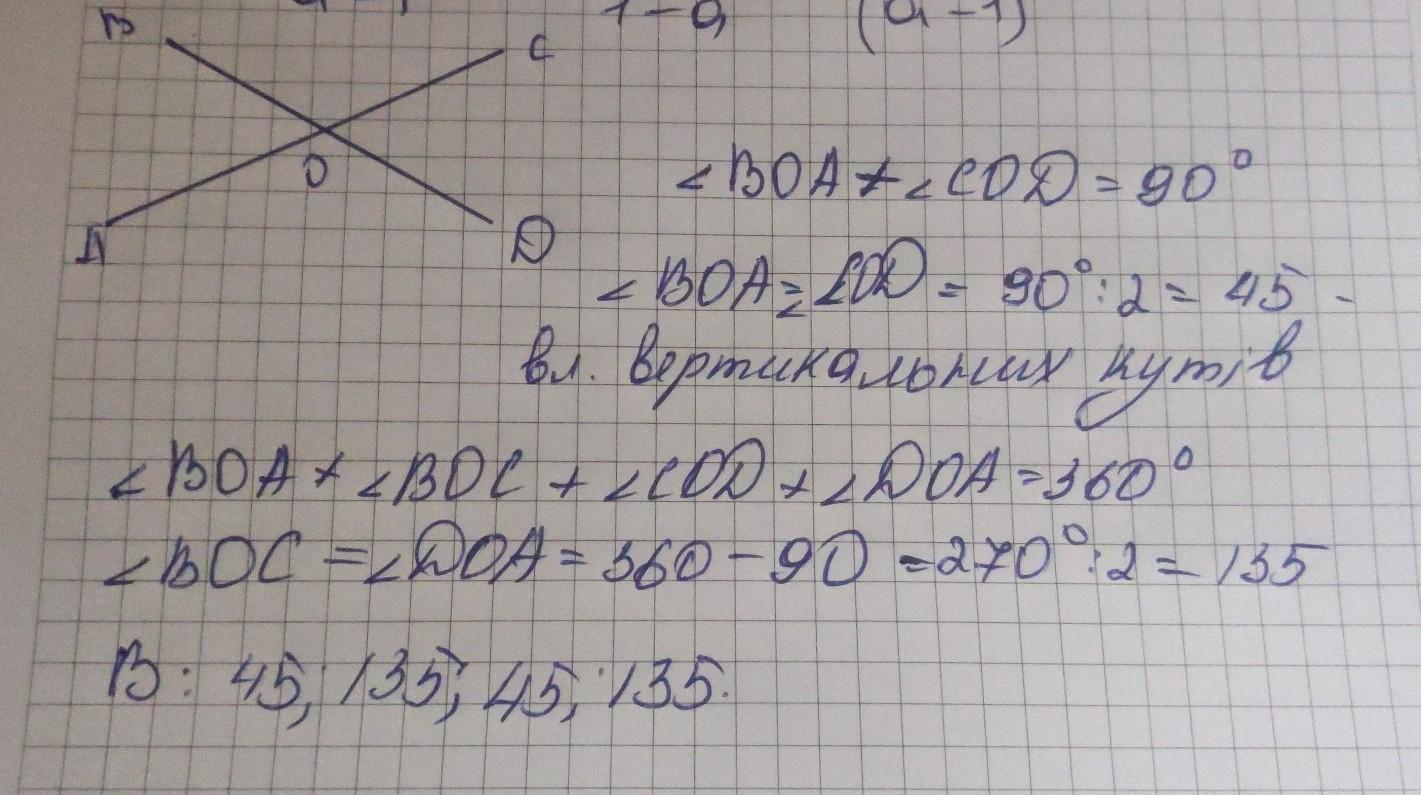 1 - a (a - 1)
B C
O
A D
∠BOA + ∠COD = 90°
∠BOA = ∠COD = 90° : 2 = 45 -
вл. вертикальних кутів
∠BOA + ∠BOC + ∠COD + ∠DOA = 360°
∠BOC = ∠DOA = 360 - 90 = 270° : 2 = 135
В: 45; 135; 45; 135.